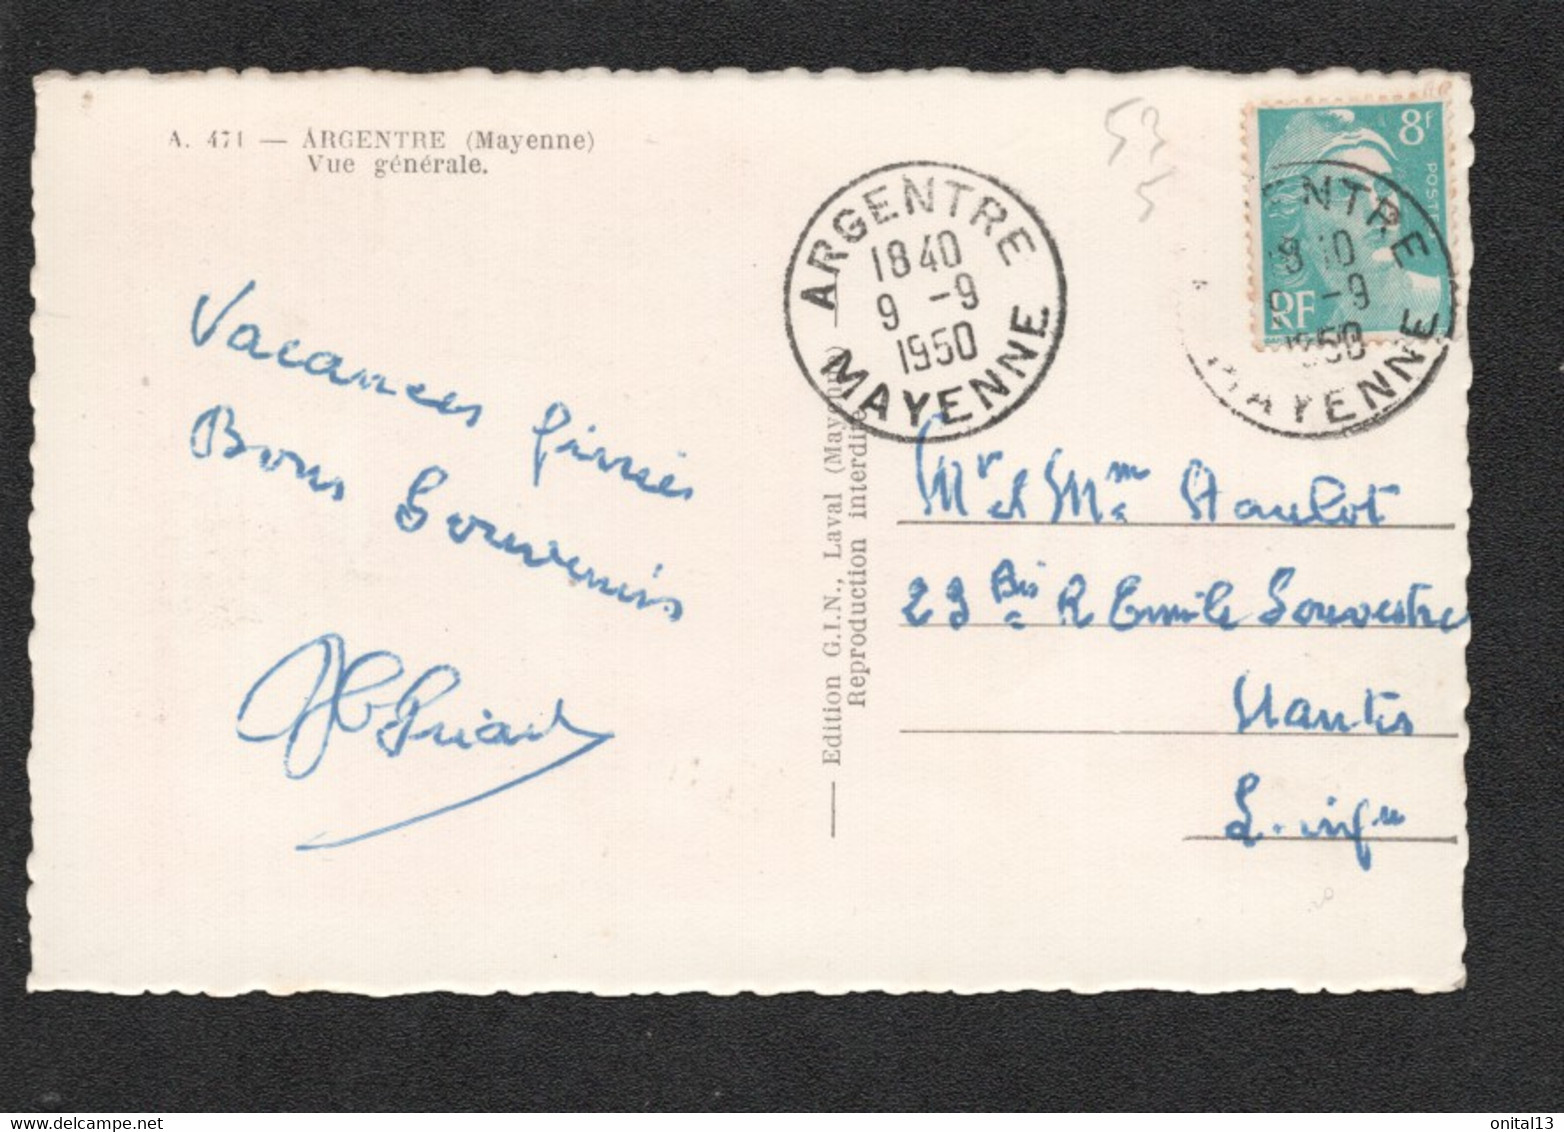 A. 471 — ARGENTRE (Mayenne)
Vue générale.
53
5
8F
POSTES
RF
ARGENTRE
1840
9 -9
1950
MAYENNE
ENTRE
-9
1950
MAYENNE
Vacances finies
Bons Souvenirs
— Edition G.I.N., Laval (Mayenne) —
Reproduction interdite
Mr et Mme
23 Bis R Emile Souvestre
Nantes
L. infre
onital13